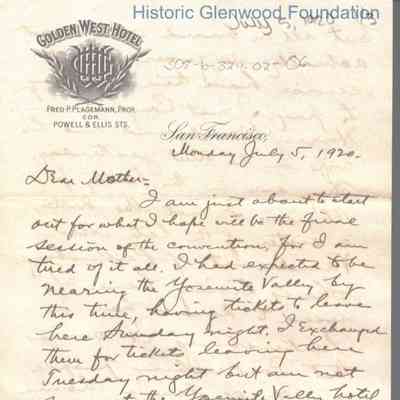 Historic Glenwood Foundation
July 5, 1920
308-b-320.02-06
GOLDEN WEST HOTEL
FRED P. PLAGEMANN, PROP.
COR.
POWELL & ELLIS STS.
San Francisco,
Monday July 5, 1920.
Dear Mother:-
I am just about to start
out for what I hope will be the final
session of the convention, for I am
tired of it all. I had expected to be
nearing the Yosemite Valley by
this time, having tickets to leave
here Sunday night. I exchanged
them for tickets leaving here
Tuesday night but am not
the Yosemite Valley hotel